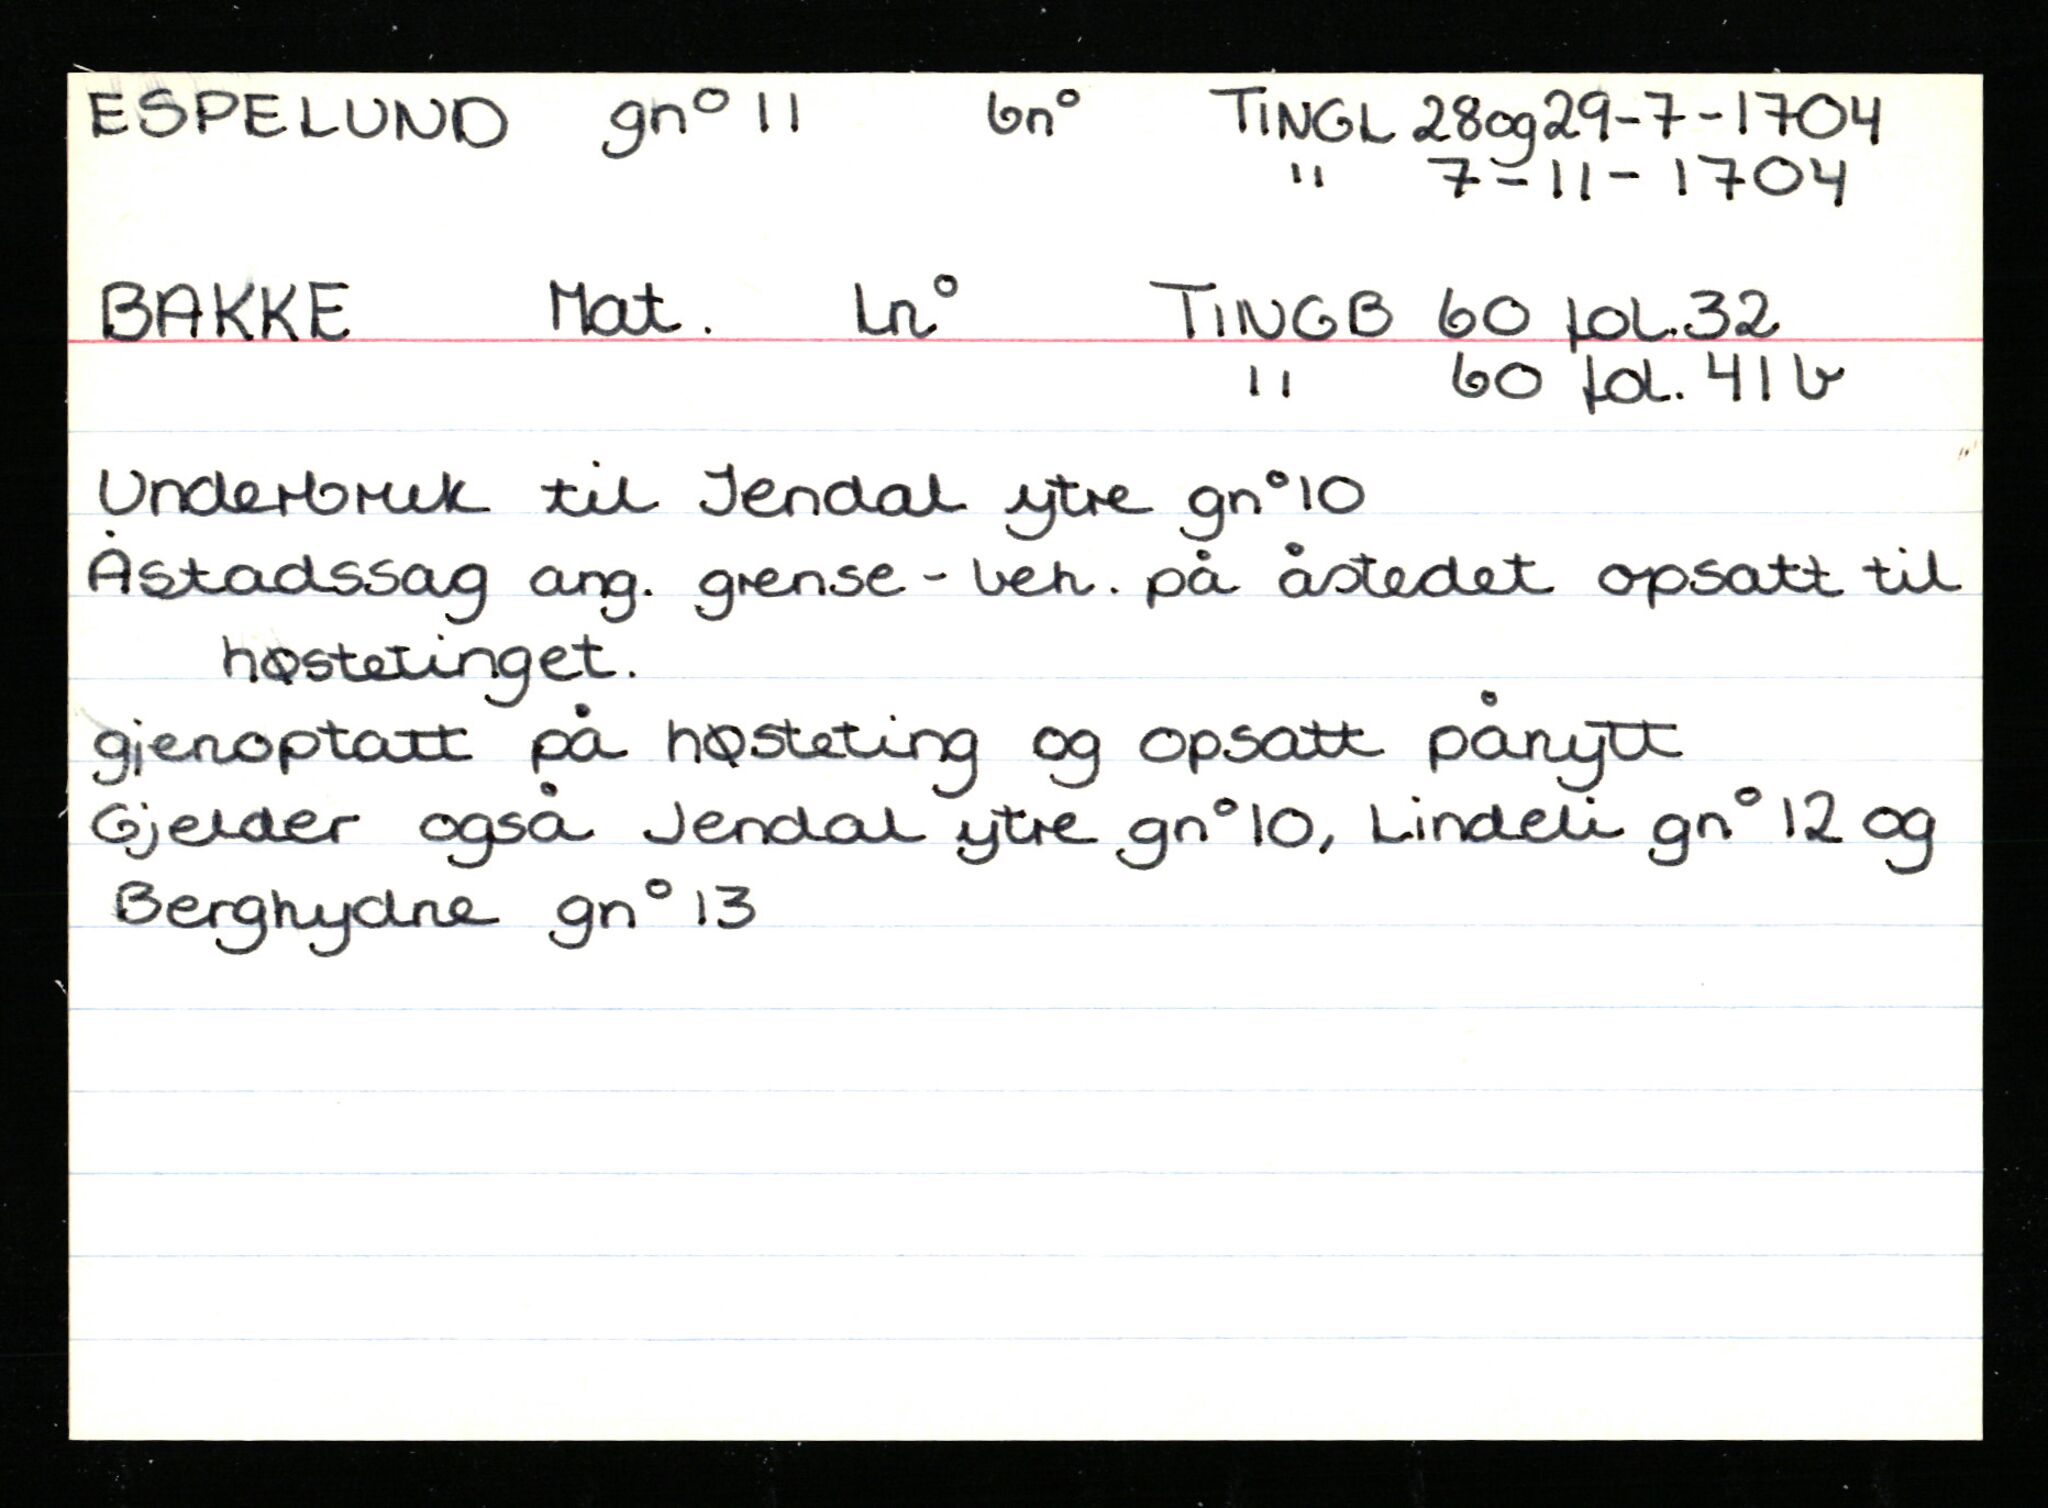 ESPELUND gnº 11 bnº TINGL 28og29-7-1704
" 7-11-1704
BAKKE Mat. Lnº TINGB 60 fol.32
" 60 fol. 41b
Underbruk til Jendal ytre gnº10
Åstadssag ang. grense - beh. på åstedet opsatt til
høstetinget.
gjenoptatt på høsteting og opsatt pånytt
Gjelder også Jendal ytre gnº10, Lindeli gnº12 og
Berghydne gnº13